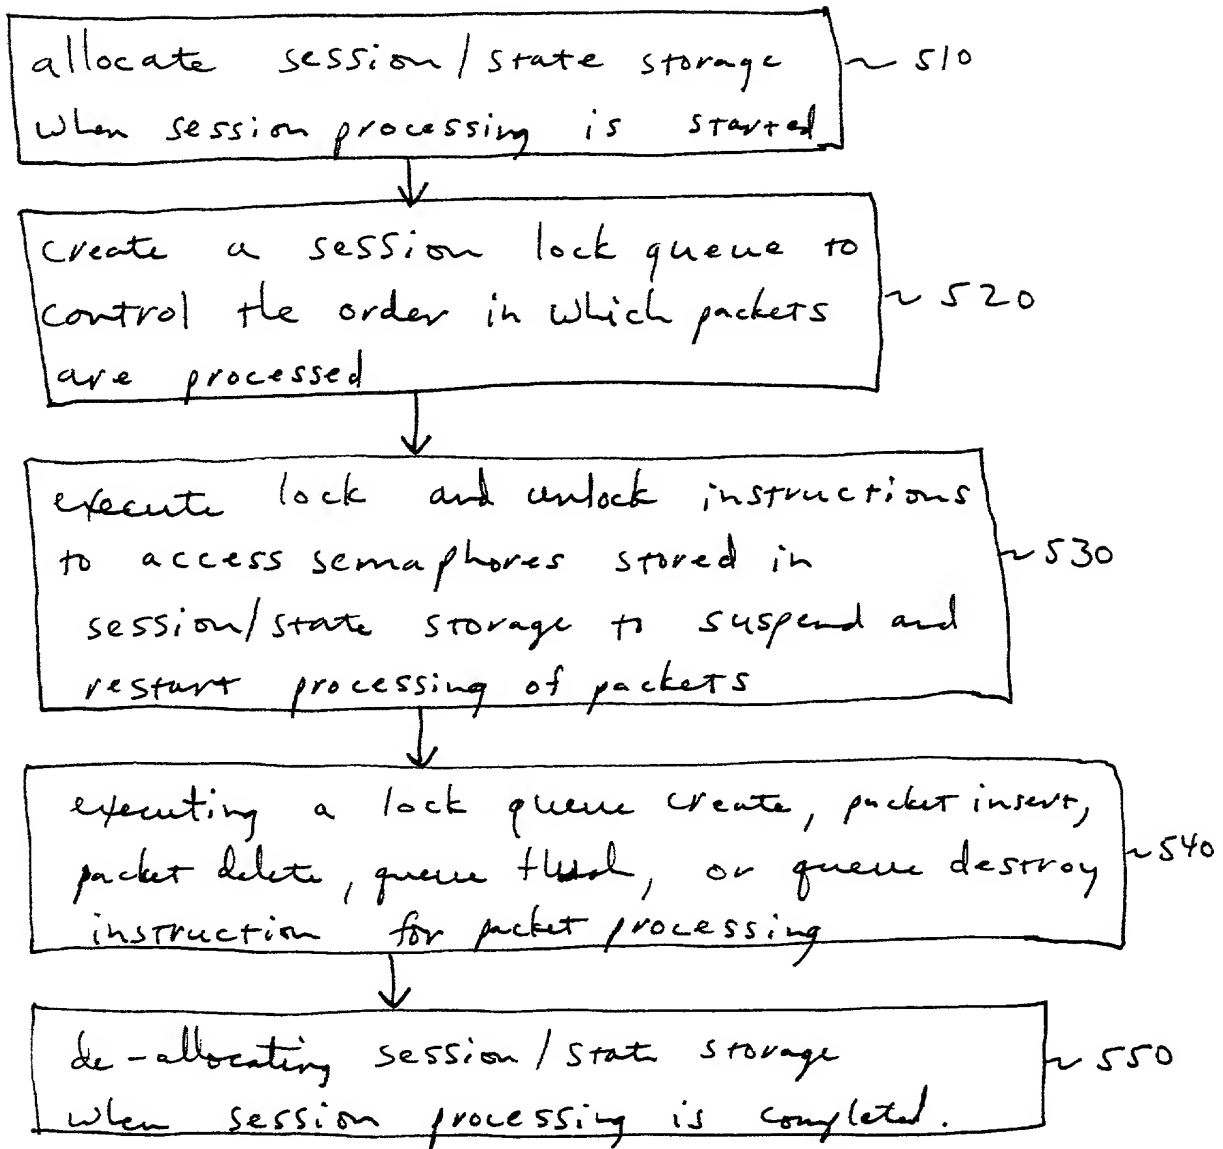 allocate session/state storage ~ 510
when session processing is started
create a session lock queue to
control the order in which packets ~ 520
are processed
execute lock and unlock instructions
to access semaphores stored in ~ 530
session/state storage to suspend and
restart processing of packets
executing a lock queue create, packet insert,
packet delete, queue flush, or queue destroy ~ 540
instruction for packet processing
de-allocating session/state storage ~ 550
when session processing is completed.